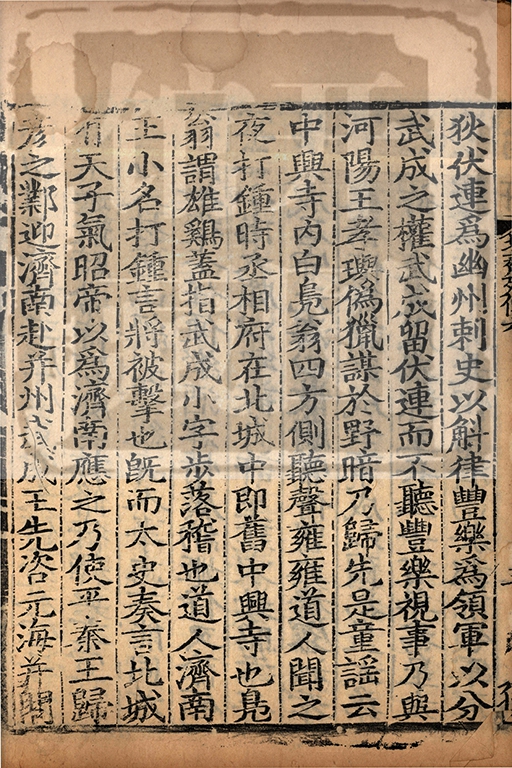 狄伏連為幽州刺史以斛律豐樂為領軍以分
武成之權武成留伏連而不聽豐樂視事乃與
河陽王孝瑜偽獵謀於野暗乃歸先是童謡云
中興寺内白鳧翁四方側聽聲雍雍道人聞之
夜打鍾時丞相府在北城中即舊中興寺也鳧
翁謂雄鷄蓋指武成小字步落稽也道人濟南
王小名打鍾言將被擊也旣而太史奏言北城
有天子氣昭帝以為濟南應之乃使平秦王歸
彦之鄴迎濟南赴并州武成王先咨元海并問